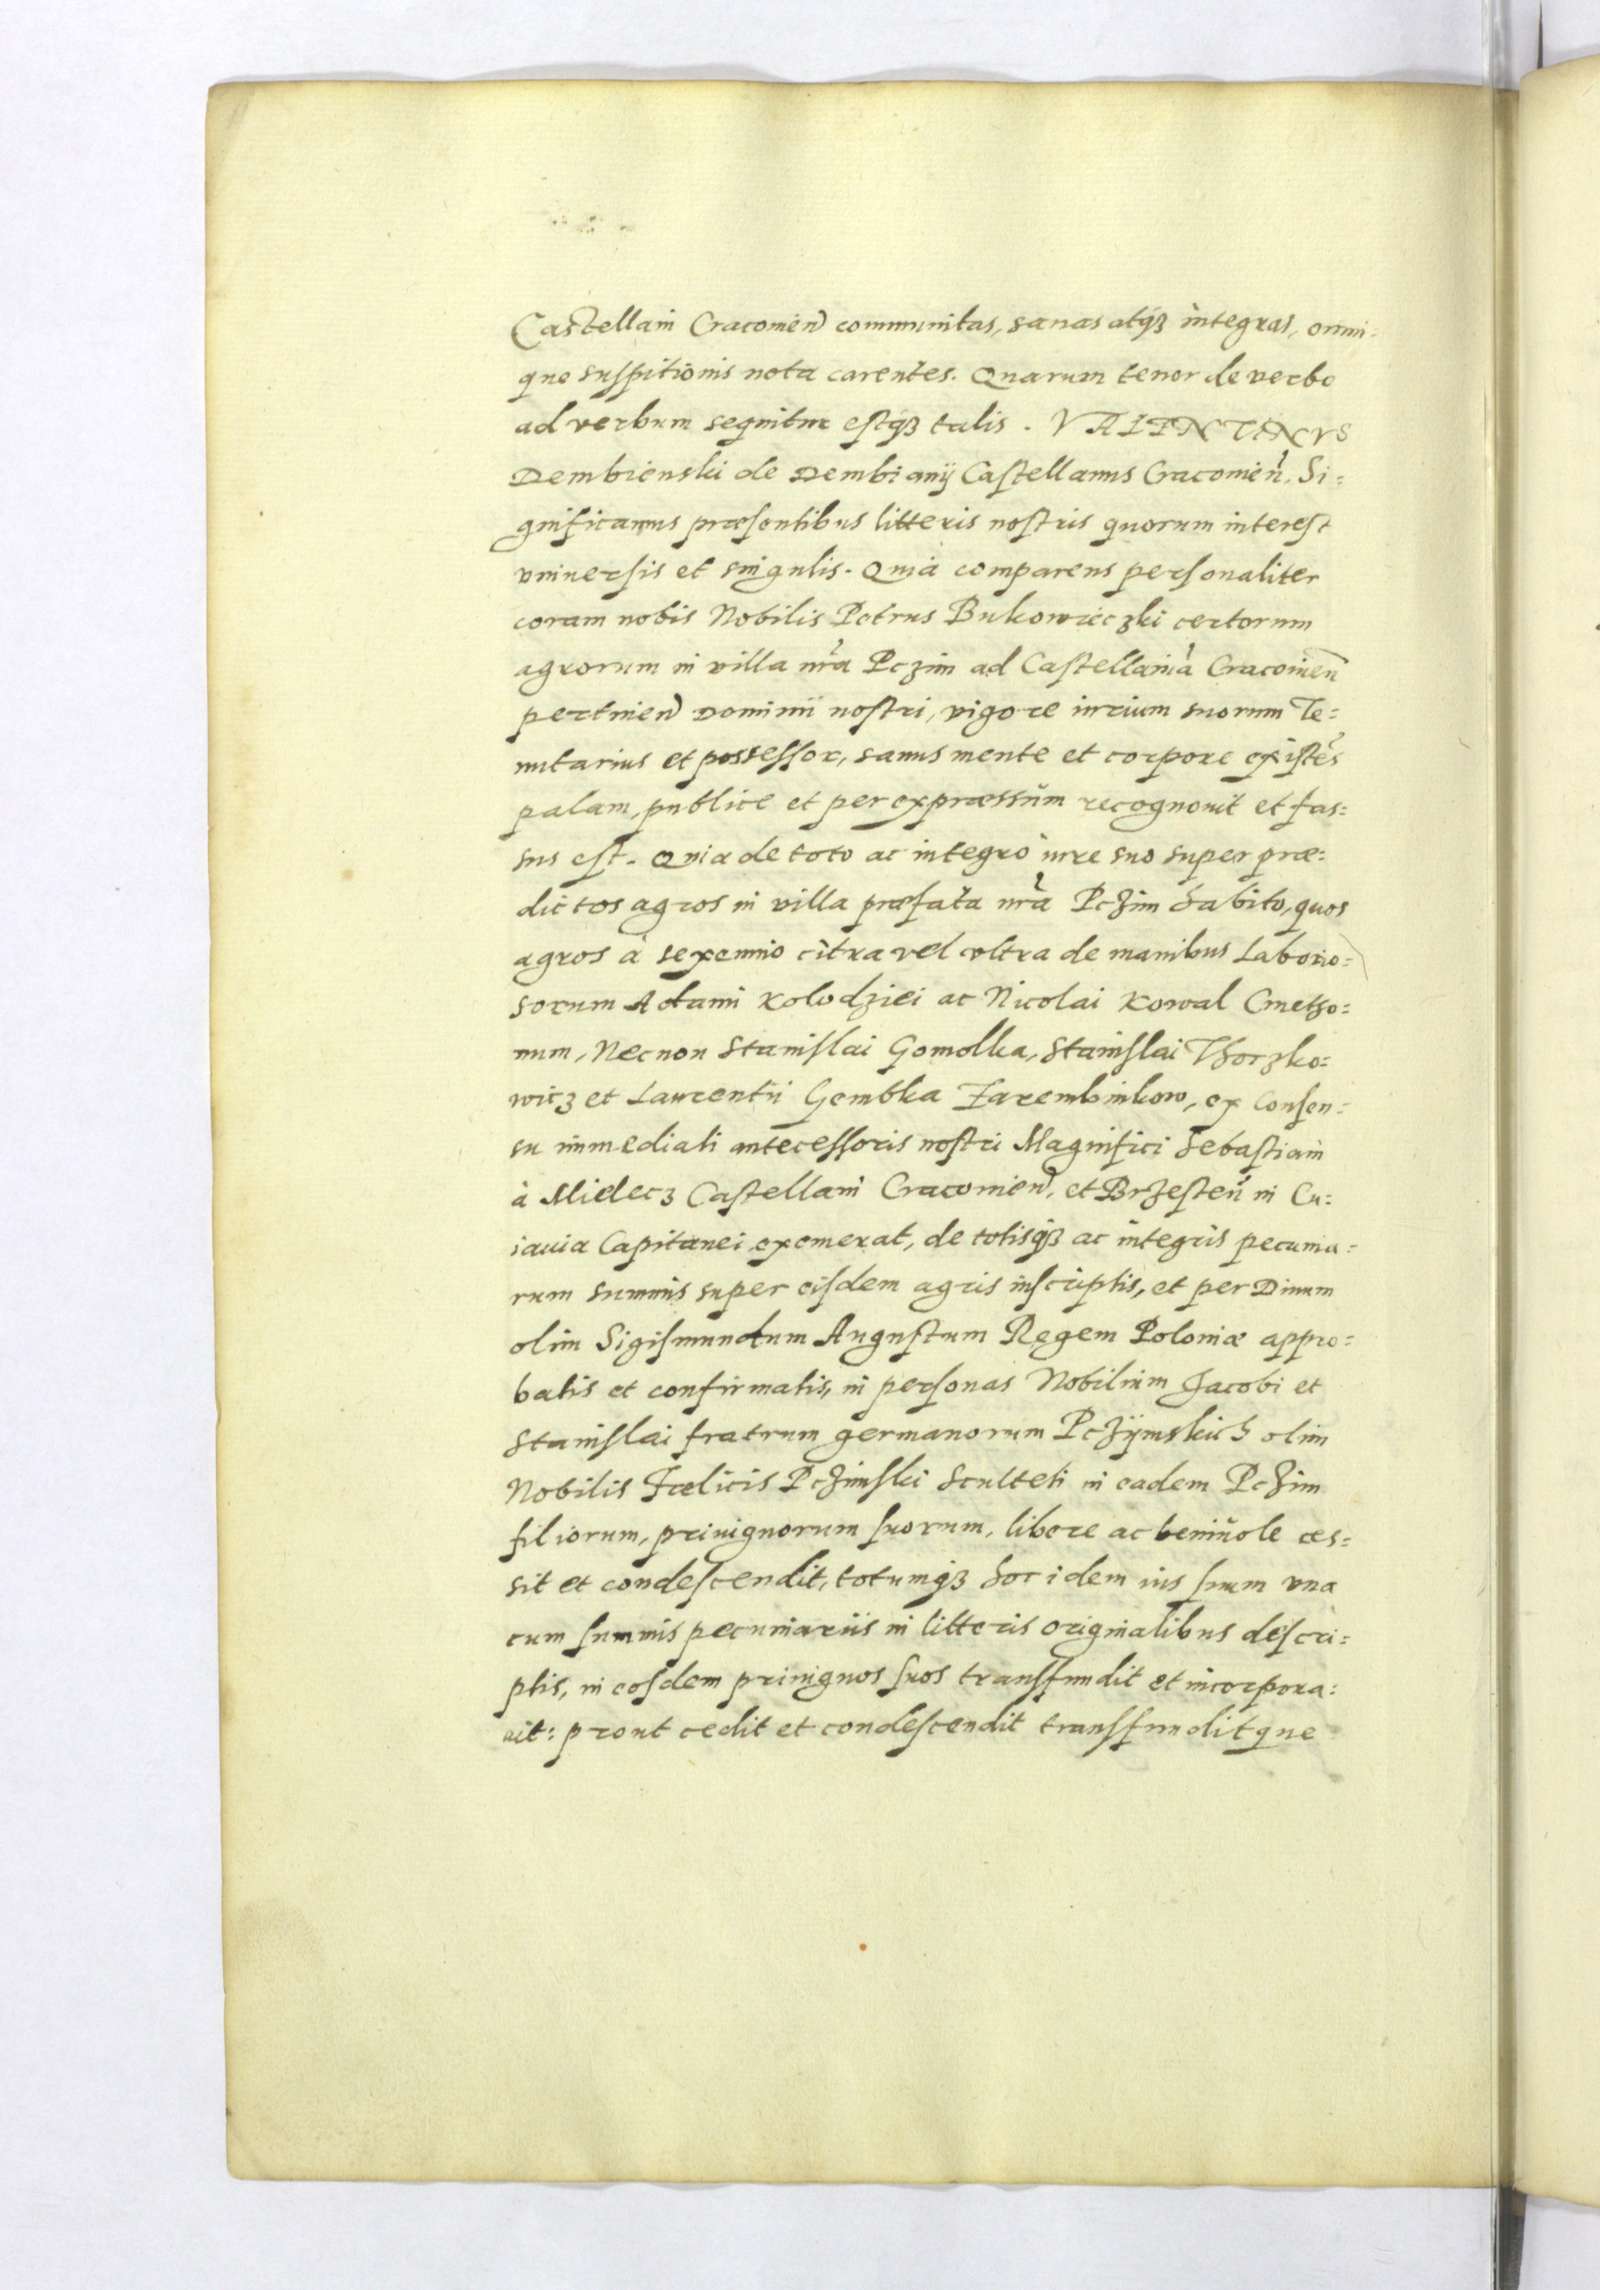 Castellani Cracouien̄ communitas, sanas atq₃ integras, omni=
que suspitionis nota carentes. Quarum tenor de verbo
ad verbum sequitur estq₃ talis. VALENTINVS
Dembienski de Dembianÿ Castellanus Cracouień. Si=
gnificamus præsentibus litteris nostris quorum interest
vniuersis et singulis. Quia comparens personaliter
coram nobis Nobilis Petrus Bukowieczki certorum
agrorum in villa nr̃a Pczim ad Castellaniã Cracouień
pertinen̄ Dominii nostri, vigore iurium suorum Te=
nutarius et possessor, sanus mente et corpore existẽs
palam, publice et per expræssum recognouit et fas=
sus est. Quia de toto ac integro iure suo super præ=
dictos agros in villa præfata nr̃a Pczim habito, quos
agros à sexennio citra vel vltra de manibus Laborio=
sorum Adami Kolodziei ac Nicolai Kowal Cmetho=
num, Necnon Stanislai Gomolka, Stanislai Thorzko=
wicz et Laurentii Gembka Zarembnikow, ex consen=
su immediati antecessoris nostri Magnifici Sebastiani
à Mielecz Castellani Cracouien̄, et Brzesteñ in Cu=
iauia Capitanei exemerat, de totisq₃ ac integris pecunia=
rum summis super eisdem agris inscriptis, et per Diuum
olim Sigismundum Augustum Regem Poloniæ appro=
batis et confirmatis, in personas Nobilium Jacobi et
Stanislai fratrum germanorum Pczÿmskich olim
Nobilis Fœlicis Pczimski Sculteti in eadem Pczim
filiorum, priuignorum suorum, libere ac beniuole ces=
sit et condescendit, totumq₃ hoc idem ius suum vna
cum summis pecuniariis in litteris originalibus descri=
ptis, in eosdem priuignos suos transfundit et incorpora=
uit: prout cedit et condescendit transfunditque